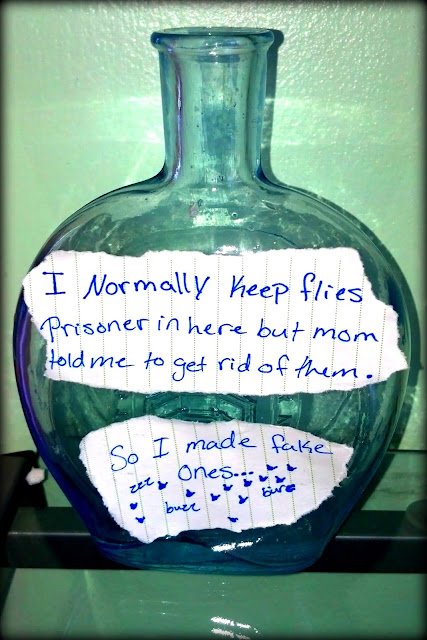 I Normally keep flies
Prisoner in here but mom
told me to get rid of them.
So I made fake
ones...
zzz buzz
buzz